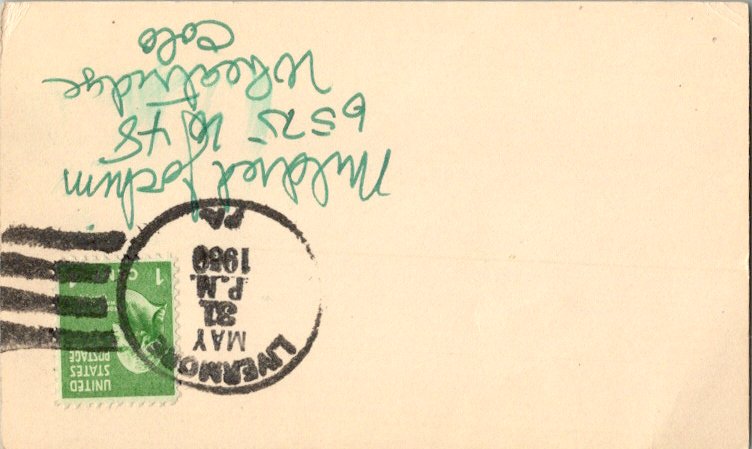 UNITED
STATES
POSTAGE
1 1
LIVERMORE
MAY
31
P.M.
1950
PA
Mildred Jochim
6575 W 48
Wheatridge
Colo